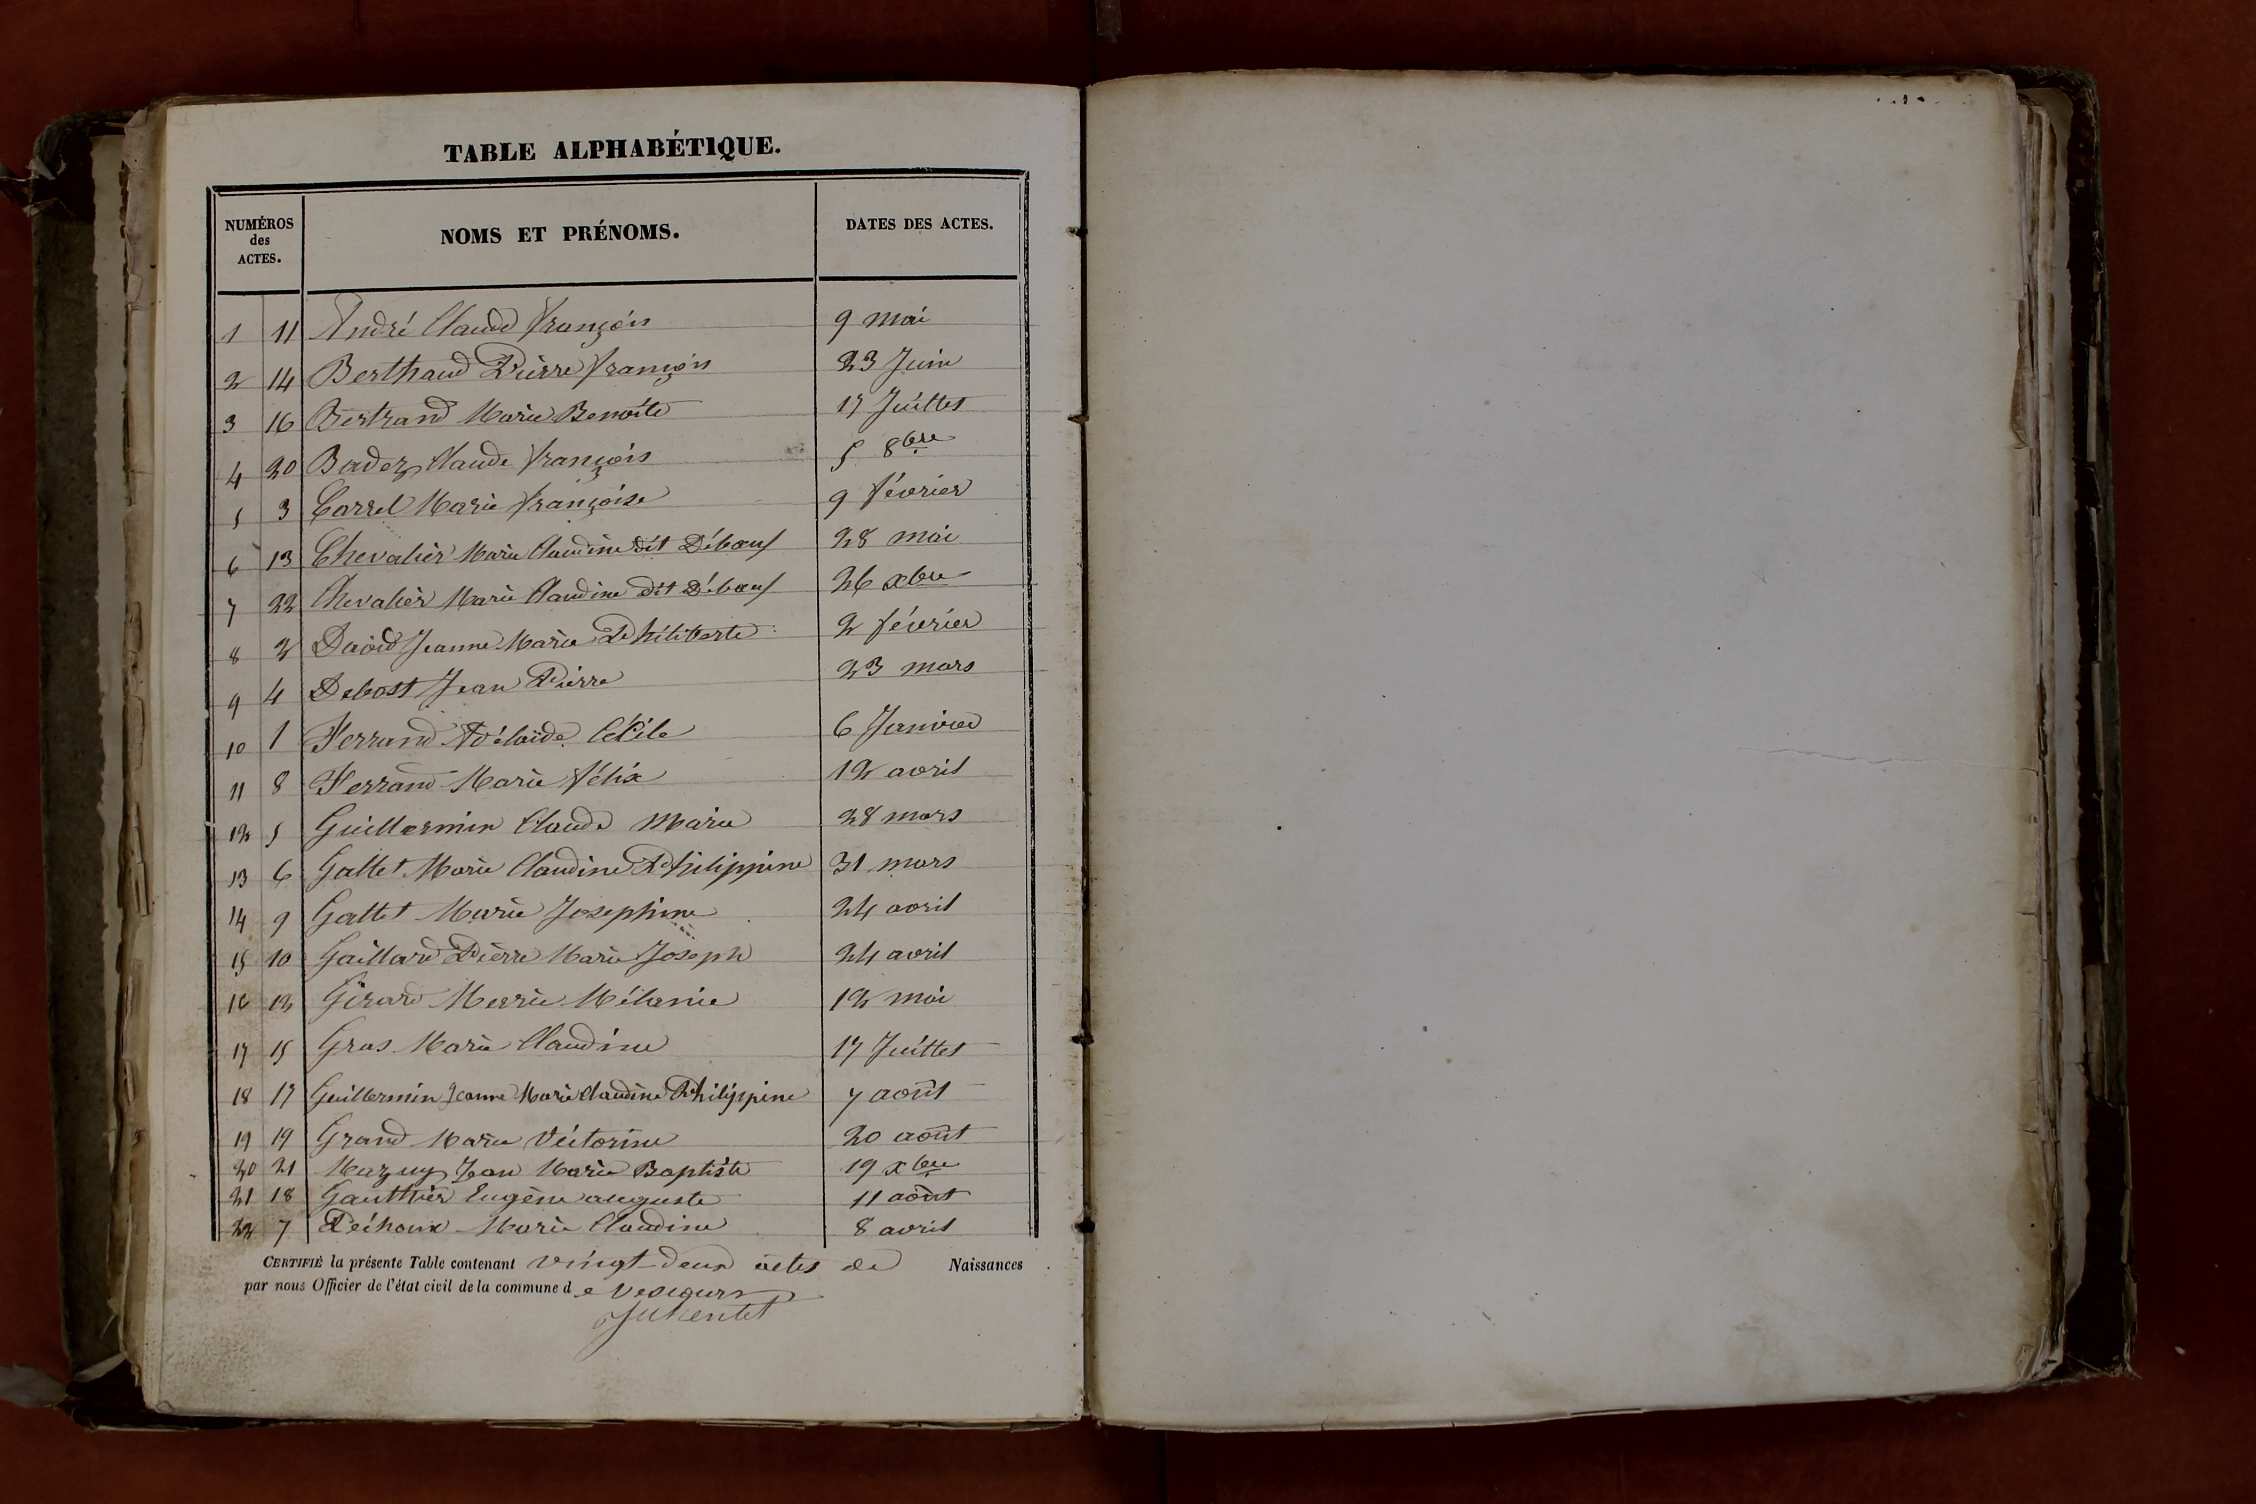 TABLE ALPHABÉTIQUE.
NUMÉROS des ACTES. NOMS ET PRÉNOMS. DATES DES ACTES.
1 11 André Claude François 9 mai
2 14 Berthaud Pierre François 23 Juin
3 16 Bertrand Marie Benoîte 17 Juillet
4 20 Badez Claude François 5 8bre
5 3 Carrel Marie Françoise 9 février
6 13 Chevalier Marie Claudine dit Débœuf 28 mai
7 22 Chevalier Marie Claudine dit Débœuf 26 xbre
8 2 David Jeanne Marie Philiberte 2 février
9 4 Debost Jean Pierre 23 mars
10 1 Ferrand Adélaïde Cécile 6 Janvier
11 8 Ferrand Marie Félix 12 avril
12 5 Guillermin Claude Marie 28 mars
13 6 Gallet Marie Claudine Philippine 31 mars
14 9 Gallet Marie Josephine 24 avril
15 10 Gaillard Pierre Marie Joseph 24 avril
16 12 Girard Marie Mélanie 12 mai
17 15 Gras Marie Claudine 17 Juillet
18 17 Guillermin Jeanne Marie Claudine Philippine 7 août
19 19 Grand Marie Victorine 20 août
20 21 Mazuy Jean Marie Baptiste 19 xbre
21 18 Gauthier Eugène auguste 11 août
22 7 Péchoux Marie Claudine 8 avril
CERTIFIÉ la présente Table contenant vingt deux actes de Naissances
par nous Officier de l'état civil de la commune de Vescours